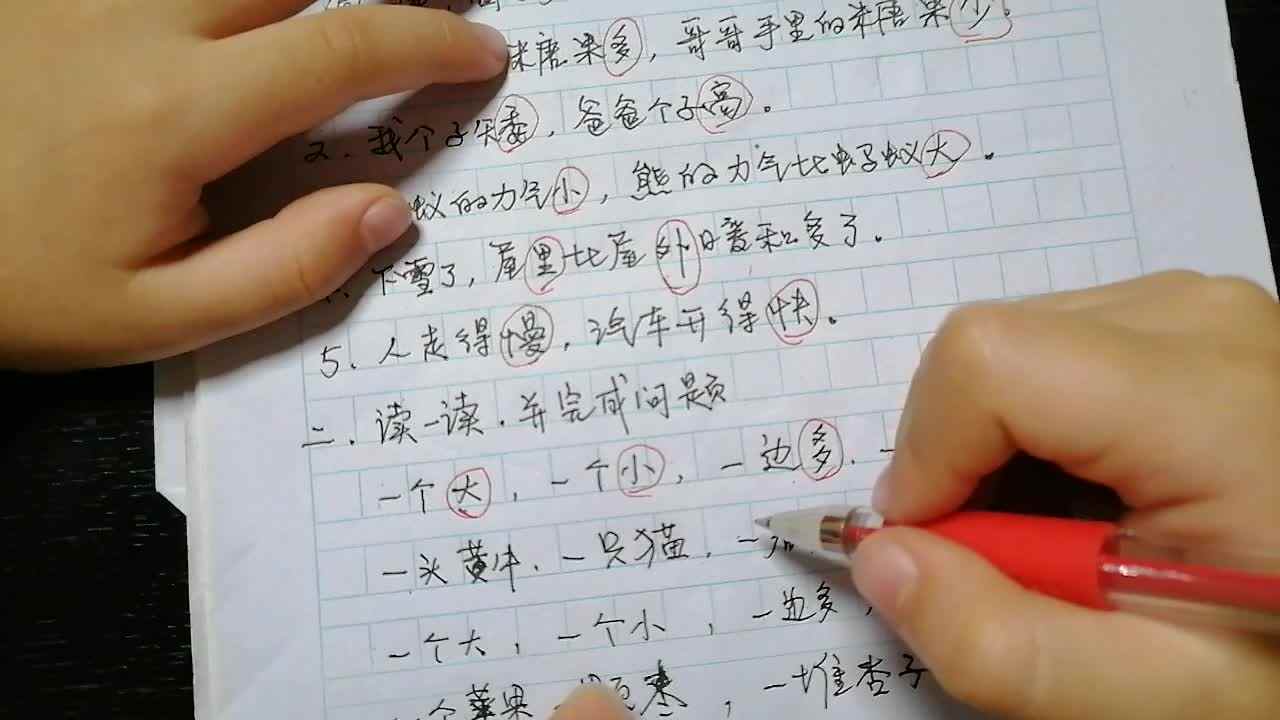 糖果多，哥哥手里的糖果少。
2.我个子矮，爸爸个子高。
蚁的力气小，熊的力气比蚂蚁大。
下雪了，屋里比屋外暖和多了。
5.人走得慢，汽车开得快。
二.读一读.并完成问题
一个大，一个小，一边多.一
一头黄牛.一只猫.一
一个大，一个小，一边多，
个苹果，一堆杏子